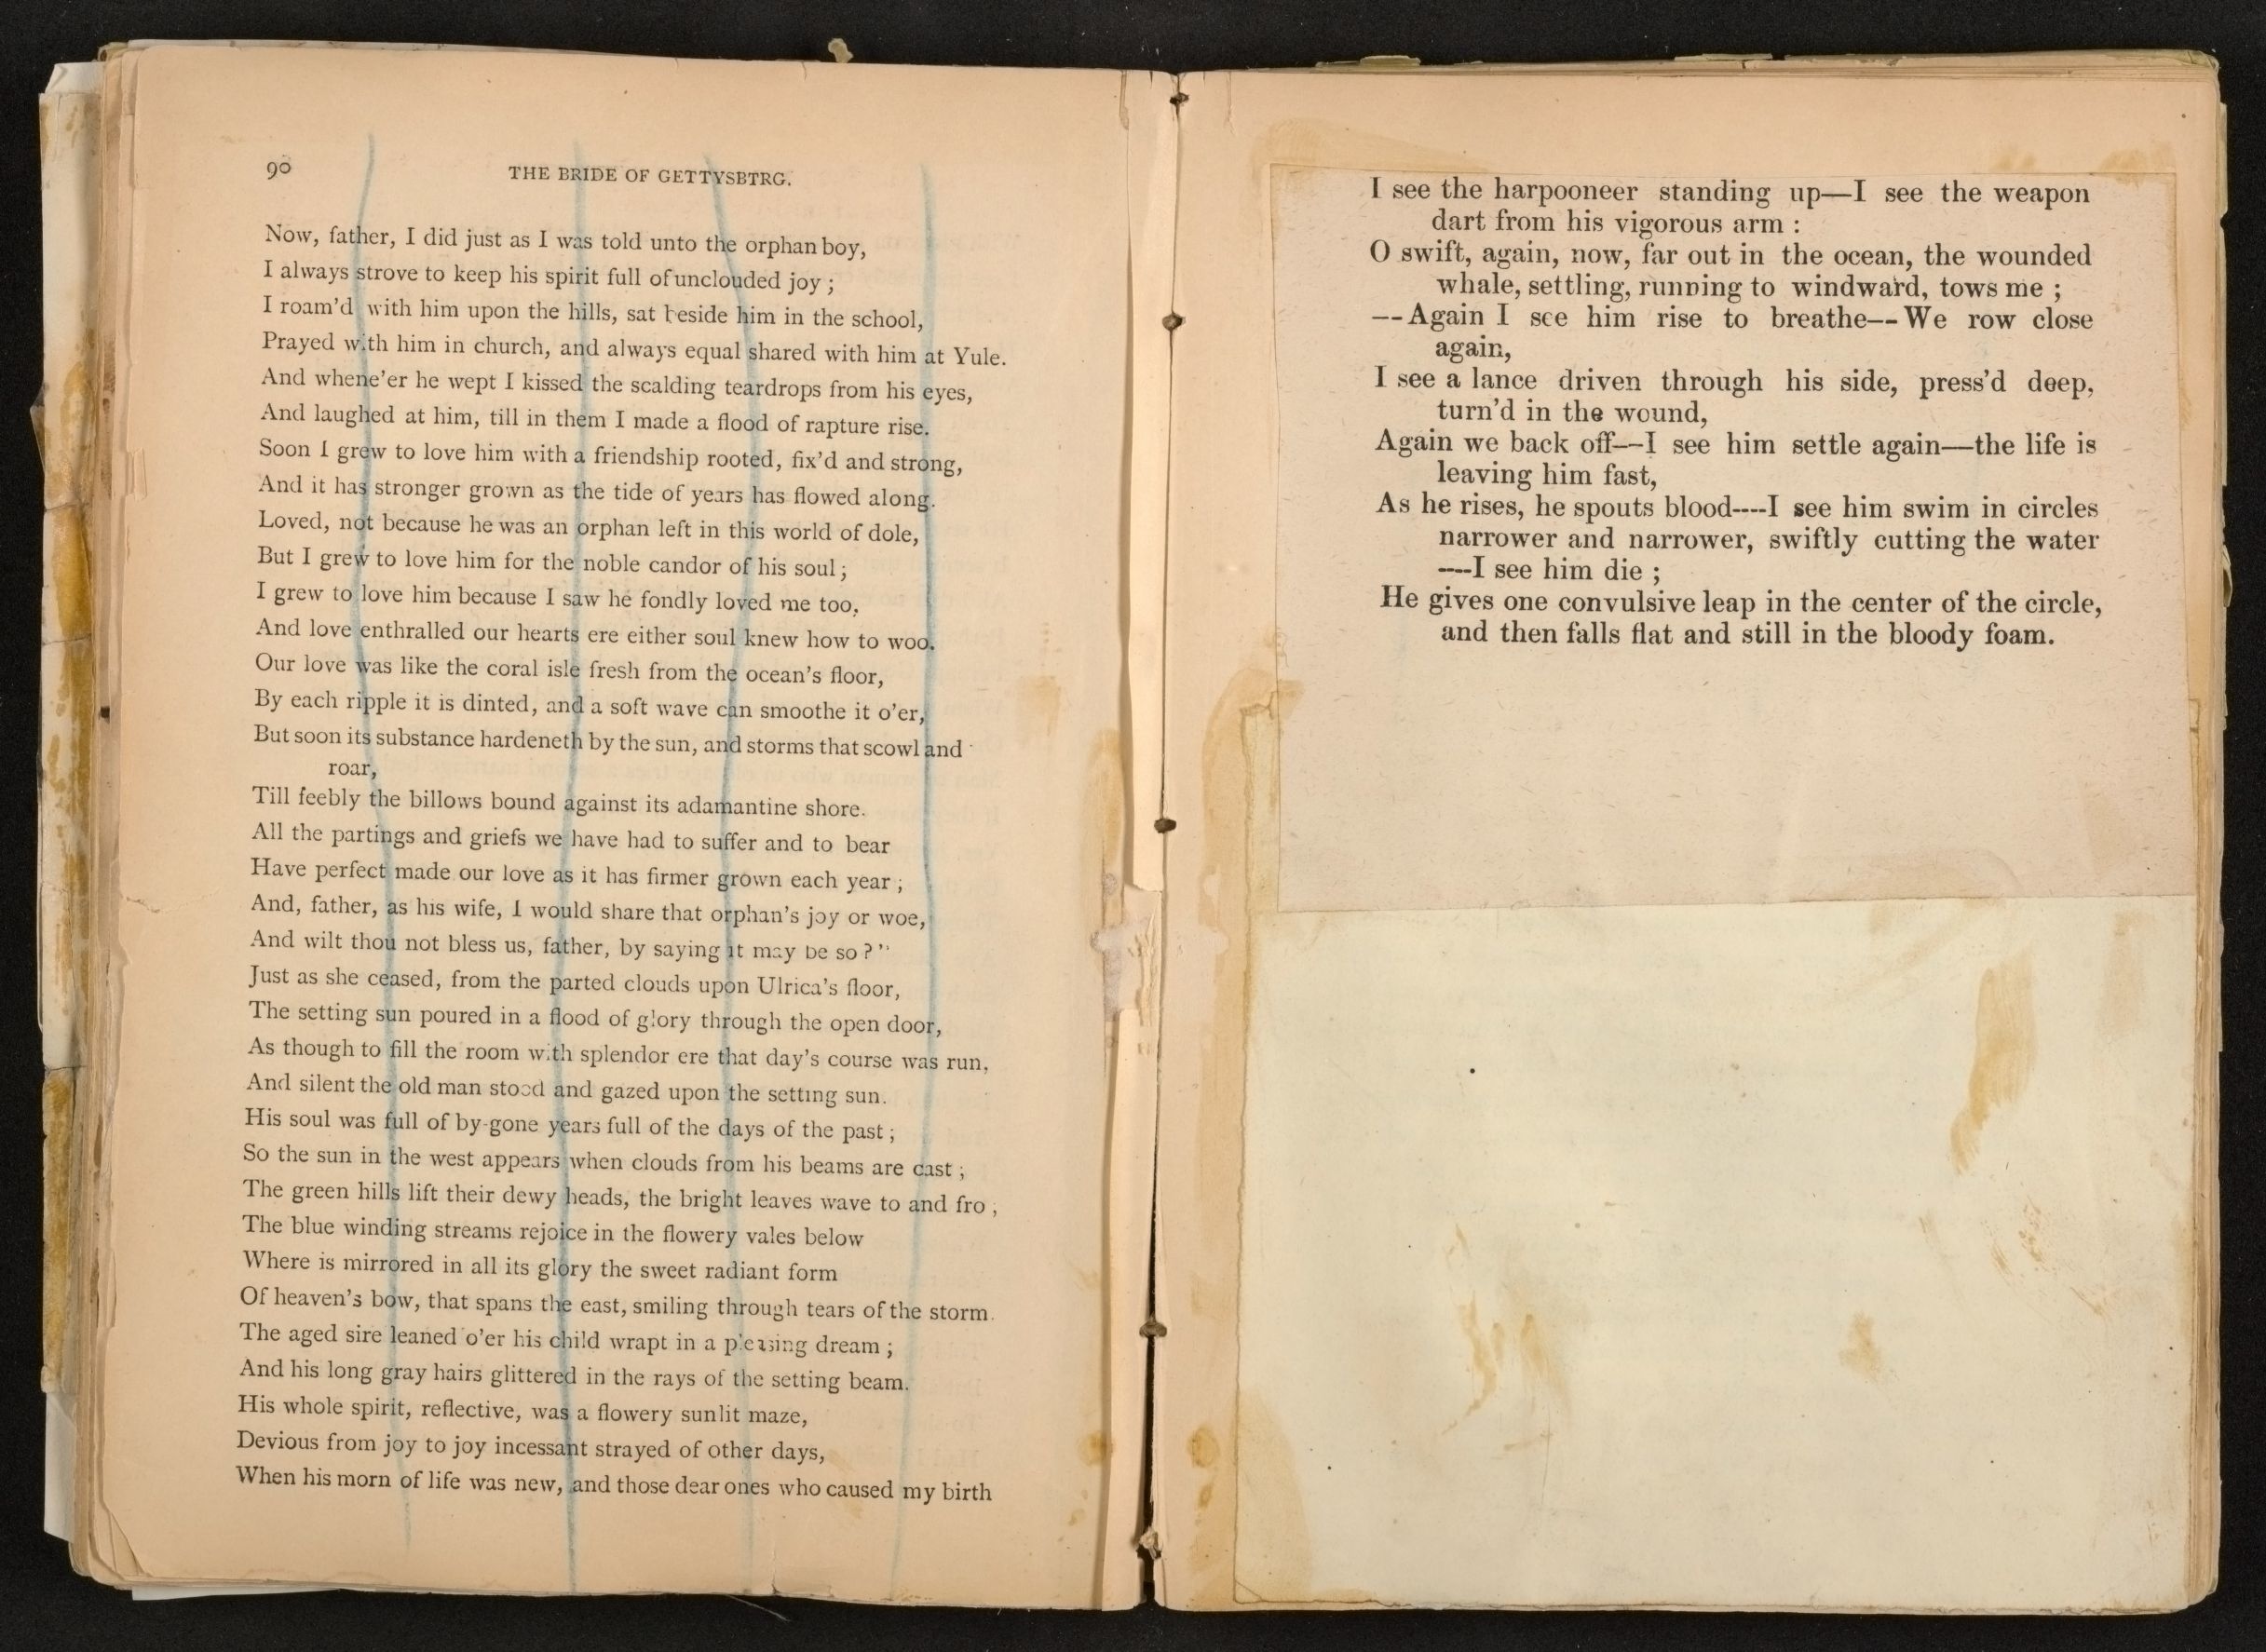 90
THE BRIDE OF GETTYSBTRG.
Now, father, I did just as I was told unto the orphan boy,
I always strove to keep his spirit full of unclouded joy ;
I roam'd with him upon the hills, sat beside him in the school,
Prayed with him in church, and always equal shared with him at Yule.
And whene'er he wept I kissed the scalding teardrops from his eyes,
And laughed at him, till in them I made a flood of rapture rise.
Soon I grew to love him with a friendship rooted, fix'd and strong,
And it has stronger grown as the tide of years has flowed along.
Loved, not because he was an orphan left in this world of dole,
But I grew to love him for the noble candor of his soul ;
I grew to love him because I saw he fondly loved me too,
And love enthralled our hearts ere either soul knew how to woo.
Our love was like the coral isle fresh from the ocean's floor,
By each ripple it is dinted, and a soft wave can smoothe it o'er,
But soon its substance hardeneth by the sun, and storms that scowl and
roar,
Till feebly the billows bound against its adamantine shore.
All the partings and griefs we have had to suffer and to bear
Have perfect made our love as it has firmer grown each year ;
And, father, as his wife, I would share that orphan's joy or woe,
And wilt thou not bless us, father, by saying it may be so ?"
Just as she ceased, from the parted clouds upon Ulrica's floor,
The setting sun poured in a flood of glory through the open door,
As though to fill the room with splendor ere that day's course was run,
And silent the old man stood and gazed upon the setting sun.
His soul was full of by-gone years full of the days of the past ;
So the sun in the west appears when clouds from his beams are cast ;
The green hills lift their dewy heads, the bright leaves wave to and fro ;
The blue winding streams rejoice in the flowery vales below
Where is mirrored in all its glory the sweet radiant form
Of heaven's bow, that spans the east, smiling through tears of the storm.
The aged sire leaned o'er his child wrapt in a pleasing dream ;
And his long gray hairs glittered in the rays of the setting beam.
His whole spirit, reflective, was a flowery sunlit maze,
Devious from joy to joy incessant strayed of other days,
When his morn of life was new, and those dear ones who caused my birth
I see the harpooneer standing up—I see the weapon
dart from his vigorous arm :
O swift, again, now, far out in the ocean, the wounded
whale, settling, running to windward, tows me ;
--Again I see him rise to breathe--We row close
again,
I see a lance driven through his side, press'd deep,
turn'd in the wound,
Again we back off--I see him settle again—the life is
leaving him fast,
As he rises, he spouts blood----I see him swim in circles
narrower and narrower, swiftly cutting the water
----I see him die ;
He gives one convulsive leap in the center of the circle,
and then falls flat and still in the bloody foam.